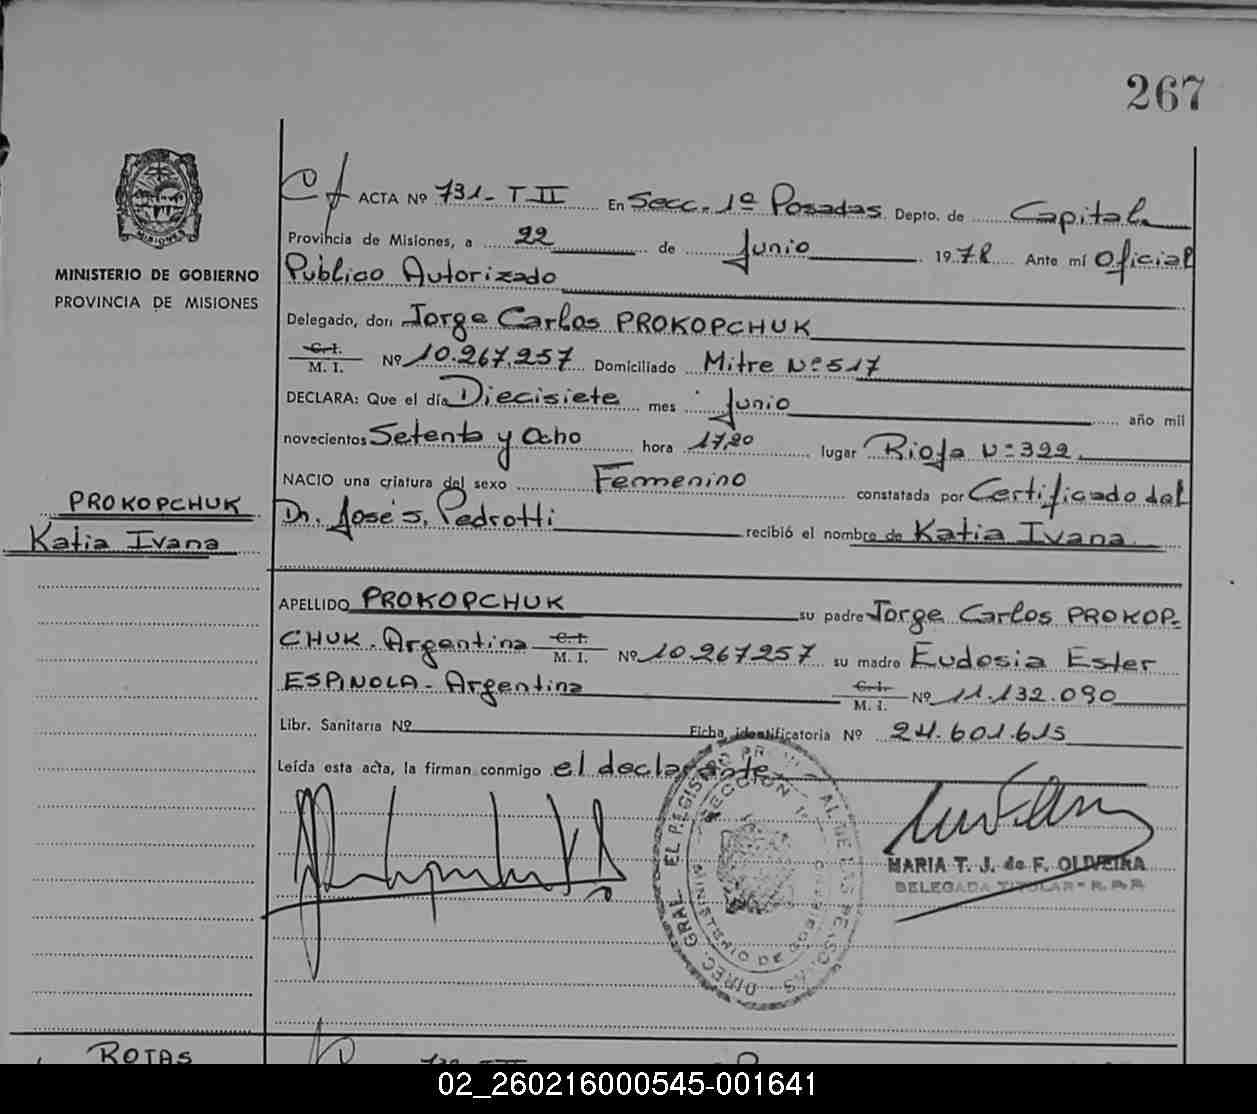 267
ACTA Nº 731-T II En Secc. 1º Posadas Depto. de Capital
Provincia de Misiones, a 22 de Junio 1978 Ante mí Oficial
Público Autorizado
MINISTERIO DE GOBIERNO
PROVINCIA DE MISIONES
Delegado, don Jorge Carlos PROKOPCHUK
C. I.
M. I. Nº 10.267.257 Domiciliado Mitre Nº 517
DECLARA: Que el día Diecisiete mes Junio año mil
novecientos Setenta y Ocho hora 17,20 lugar Rioja Nº 322.
NACIO una criatura del sexo Femenino constatada por Certificado del
Dr. José S. Pedrotti recibió el nombre de Katia Ivana
PROKOPCHUK
Katia Ivana
APELLIDO PROKOPCHUK su padre Jorge Carlos PROKOP-
CHUK. Argentina C. I. M. I. Nº 10.267.257 su madre Eudosia Ester
ESPINOLA - Argentina C. I. M. I. Nº 11.132.090
Libr. Sanitaria Nº Ficha identificatoria Nº 24.601.615
Leída esta acta, la firman conmigo el declarante.
DIREC. GRAL. EL REGISTRO DE LAS PERSONAS
SECCION 1ª
MINISTERIO DE GOBIERNO
MARIA T. J. de F. OLIVEIRA
DELEGADA TITULAR - R. P. P.
ROTAS
02_260216000545-001641